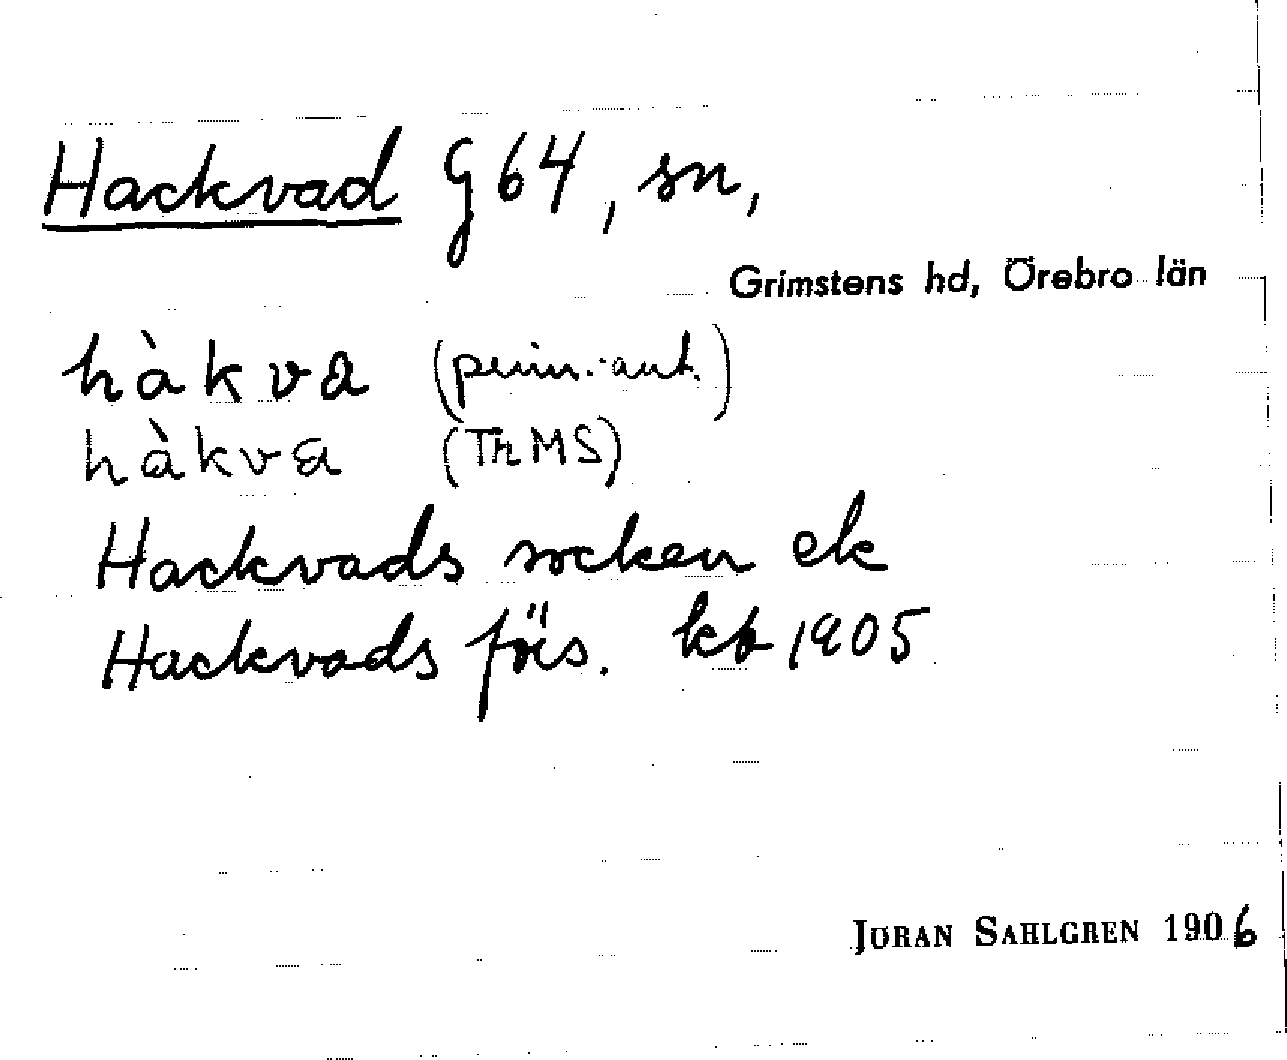 Hackvad G 64, sn,
Grimstens hd, Örebro län
hàkva (prim.-ant.)
hàkva (Th MS)
Hackvads socken ek
Hackvads förs. kb 1905
JÖRAN SAHLGREN 1906